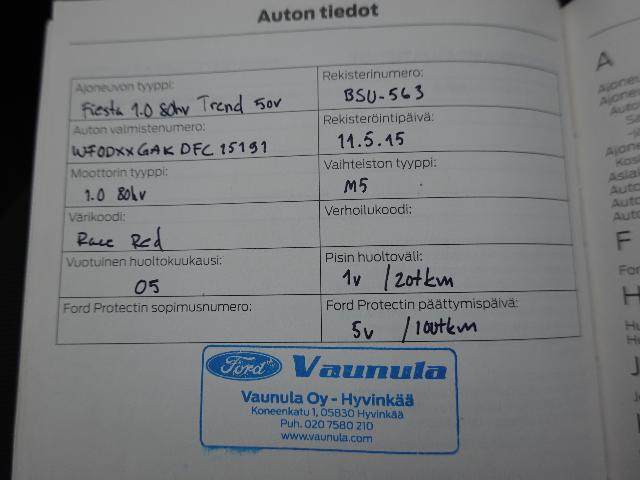 Auton tiedot
Ajoneuvon tyyppi:
Fiesta 1.0 80hv Trend 5ov
Rekisterinumero:
BSU-563
Auton valmistenumero:
WF0DXXGAKDFC15191
Rekisteröintipäivä:
11.5.15
Moottorin tyyppi:
1.0 80hv
Vaihteiston tyyppi:
M5
Värikoodi:
Race Red
Verhoilukoodi:
Vuotuinen huoltokuukausi:
05
Pisin huoltoväli:
1v /20tkm
Ford Protectin sopimusnumero:
Ford Protectin päättymispäivä:
5v /100tkm
Ford Vaunula
Vaunula Oy - Hyvinkää
Koneenkatu 1, 05830 Hyvinkää
Puh. 020 7580 210
www.vaunula.com
A
Ajone
Ajone
Auto
Ajone
Asiak
Auto
Auto
Auto
F
For
H
Hu
J